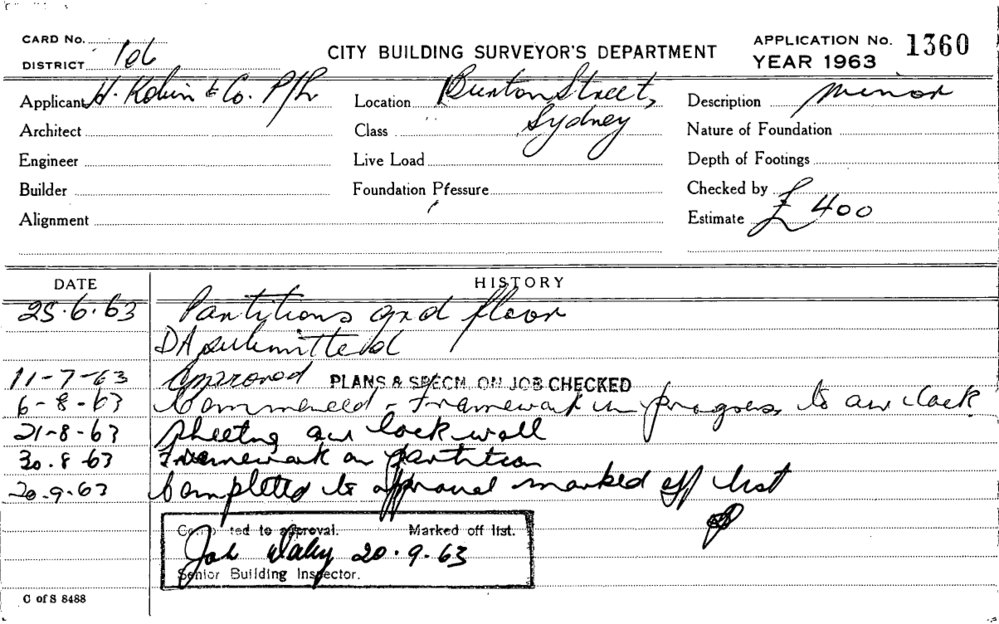 CARD No.
DISTRICT 106
CITY BUILDING SURVEYOR'S DEPARTMENT
APPLICATION No. 1360
YEAR 1963
Applicant H. & Co. P/L
Location Burton Street,
Sydney
Description Minor
Architect
Class
Nature of Foundation
Engineer
Live Load
Depth of Footings
Builder
Foundation Pressure
Checked by
Alignment
Estimate £400
DATE
HISTORY
25.6.63 Partitions and floor
DA submitted
11-7-63 Approved PLANS & SPECN. ON JOB CHECKED
6-8-63 Commenced - Framework in progress to air lock
21-8-63 Sheeting air lock wall
30.8.63 Framework on partition
20.9.63 Completed to approval marked off list
Completed to approval. Marked off list.
20.9.63
Senior Building Inspector.
C of S 8488